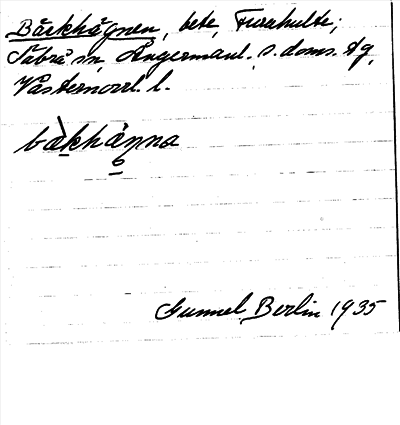 Bärkhägnen, bete, Furuhult;
Säbrå sn, Ångermanl. s. doms. tg,
Västernorrl. l.
bàkhäŋna
Gunnel Berlin 1935